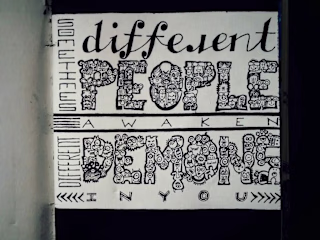 different
PEOPLE
AWAKEN
DIFFERENT
DEMONS
IN YOU